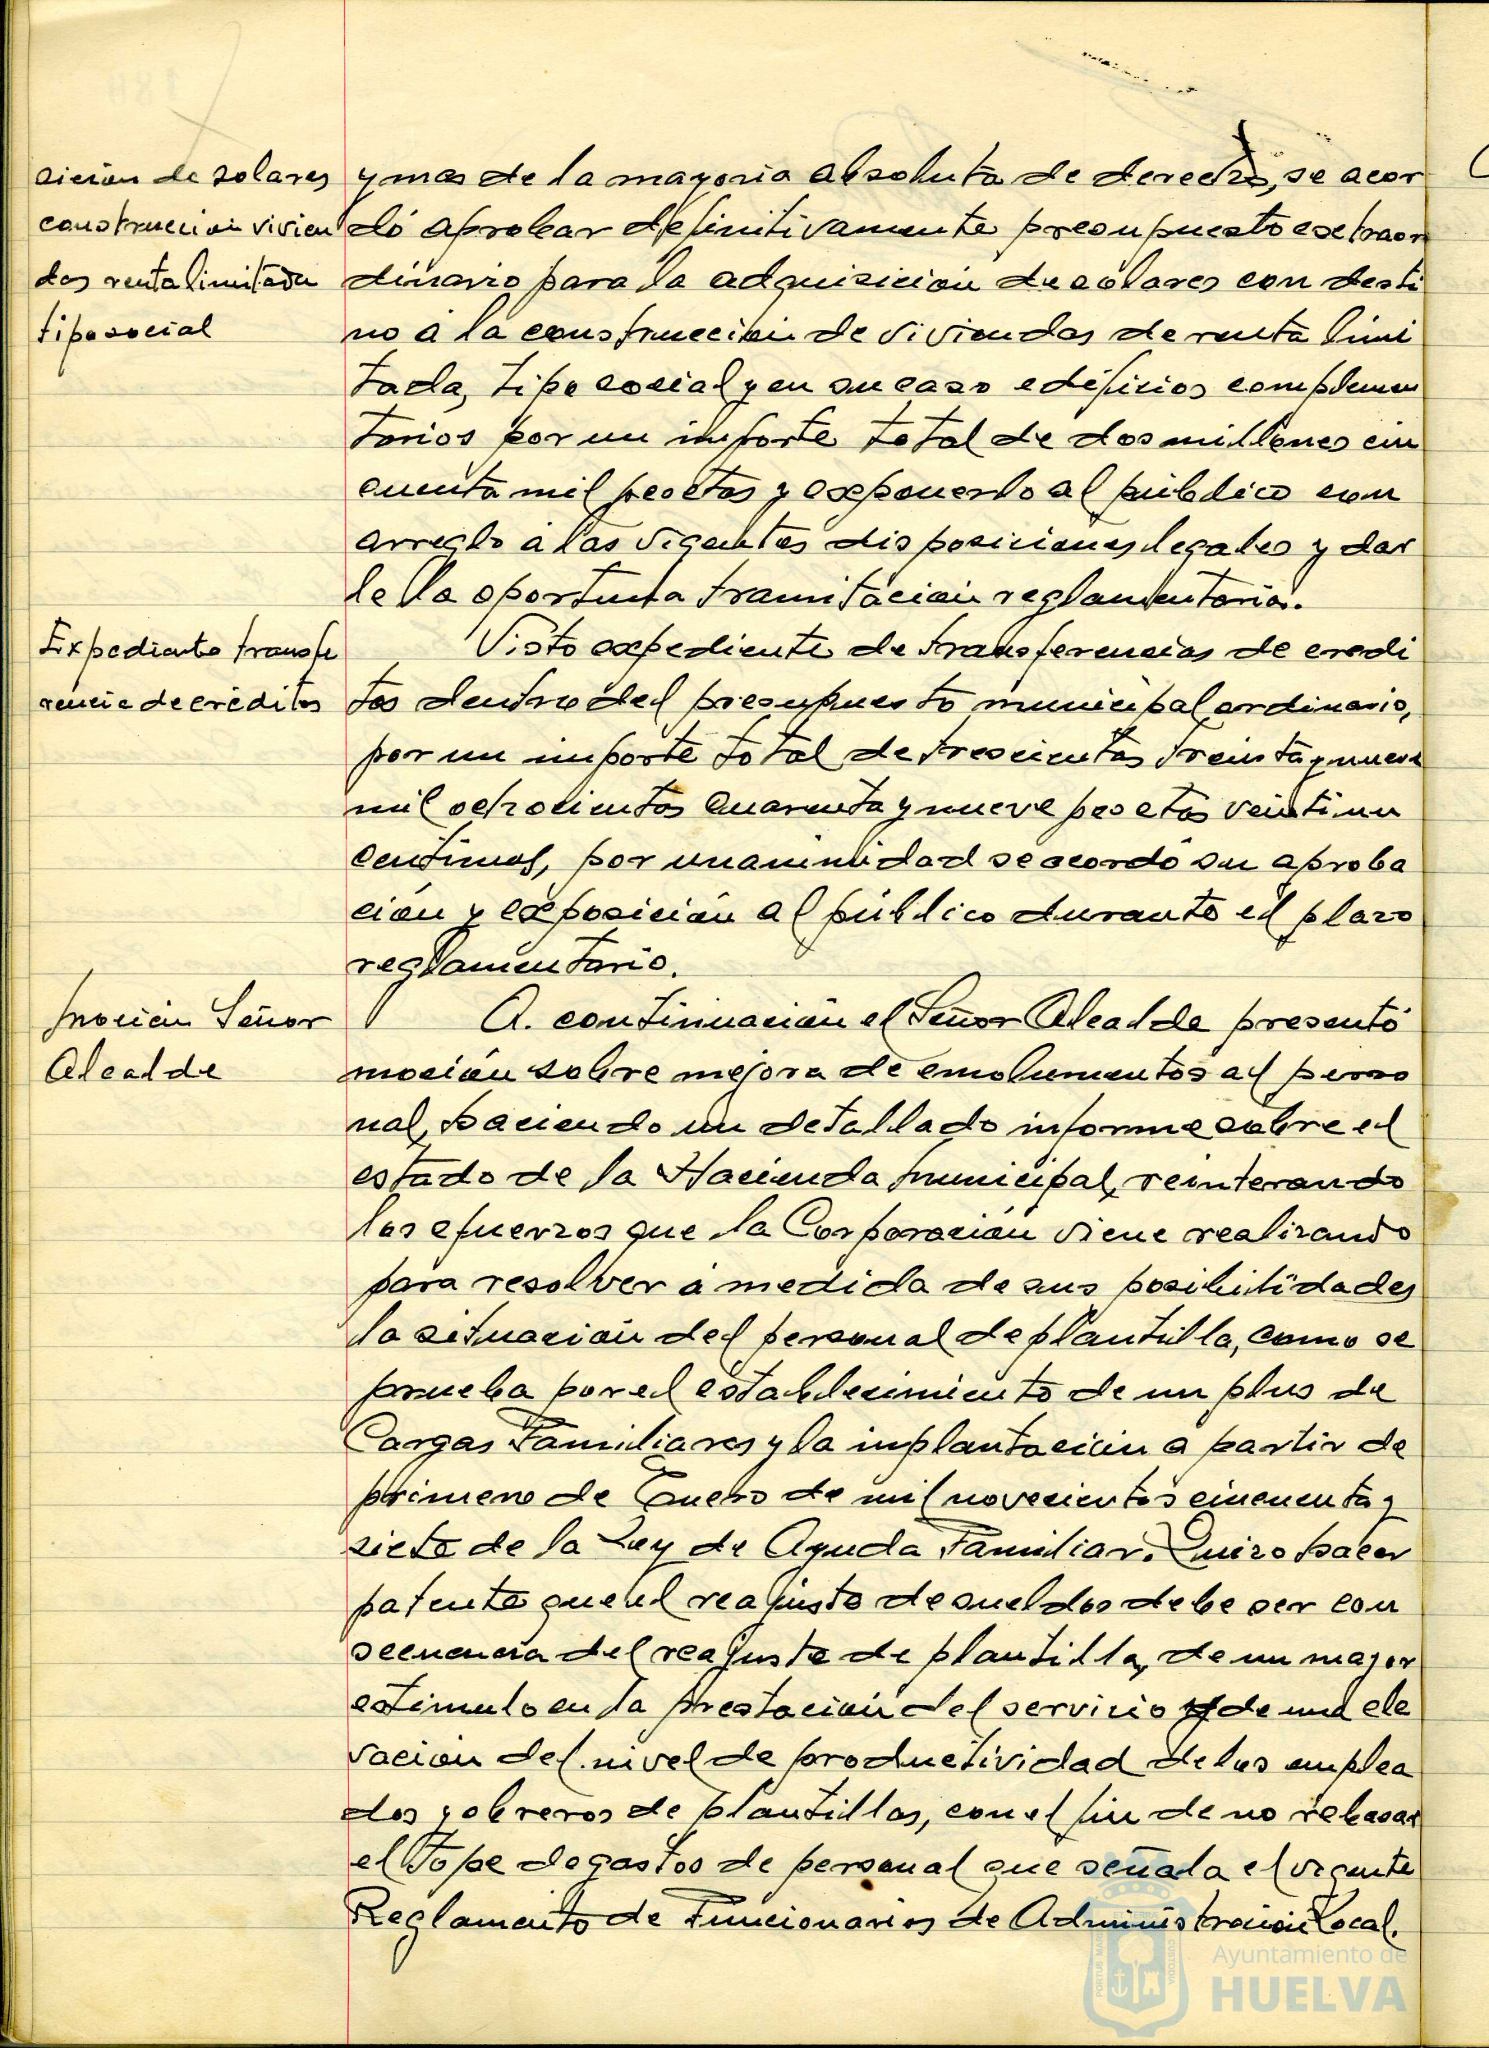 sición de solares
construccion vivien
das renta limitada
tipo social
y mas de la mayoria absoluta de derecho, se acor
dó aprobar definitivamente presupuesto extraor
dinario para la adquisición de solares con desti
no a la construcción de viviendas de renta limi
tada, tipo social y en su caso edificios complemen
tarios por un importe total de dos millones cin
cuenta mil pesetas y exponerlo al público con
arreglo a las vigentes disposiciones legales y dar
le la oportuna tramitación reglamentaria.
Expediente transfe
rencia de créditos
Visto expediente de transferencias de credi
tos dentro del presupuesto municipal ordinario,
por un importe total de trescientas treinta y nueve
mil ochocientos cuarenta y nueve pesetas veintiun
centimos, por unanimidad se acordó su aproba
ción y exposición al público durante el plazo
reglamentario.
Moción Señor
Alcalde
A. continuación el Señor Alcalde presentó
moción sobre mejora de emolumentos al perso
nal, haciendo un detallado informe sobre el
estado de la Hacienda Municipal, reinterando
los efuerzos que la Corporación viene realizando
para resolver a medida de sus posibilidades
la situación del personal de plantilla, como se
prueba por el establecimiento de un plus de
Cargas Familiares y la implantación a partir de
primero de Enero de mil novecientos cincuenta y
siete de la Ley de Ayuda Familiar. Quiso hacer
patente que el reajuste de sueldos debe ser con
secuencia del reajuste de plantilla, de un mayor
estimulo en la prestación del servicio y de una ele
vación del nivel de productividad de los emplea
dos y obreros de plantillas, con el fin de no rebasar
el tope de gastos de personal que señala el vigente
Reglamento de Funcionarios de Administración Local.
Ayuntamiento de
HUELVA